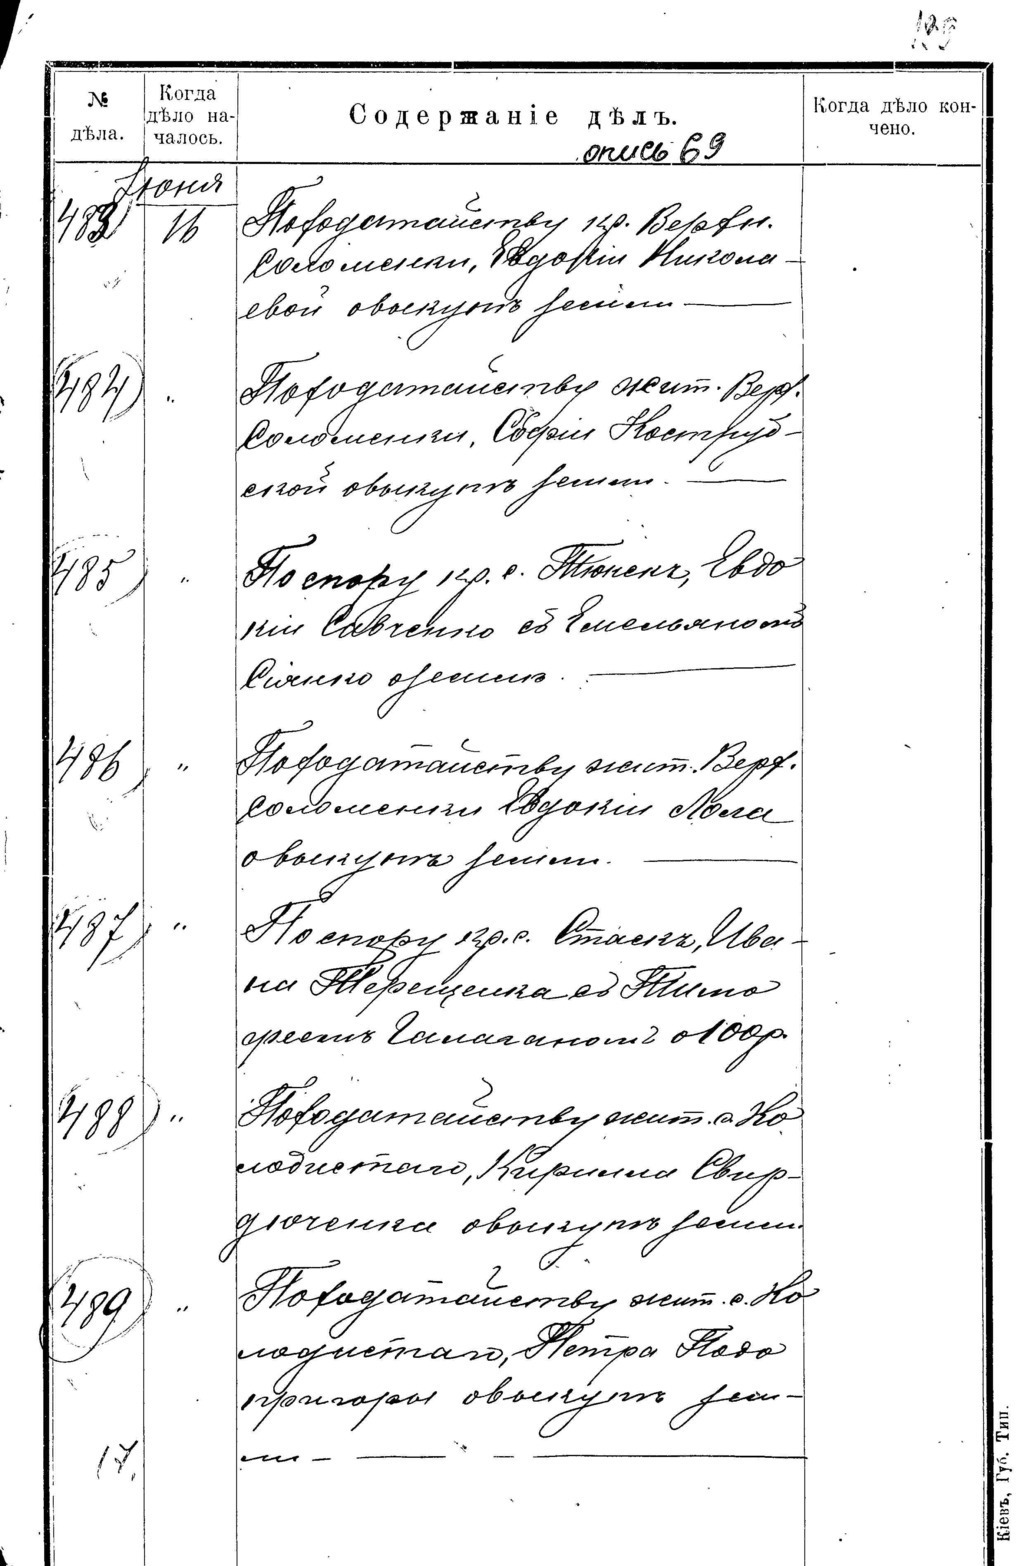 129
№ дѣла.
Когда дѣло на-
чалось.
Содержаніе дѣлъ.
Когда дѣло кон-
чено.
опись 69
Іюня
483 16 По ходатайству кр. Верхн.
Соломенки, Евдокіи Никола-
евой о выкупѣ земли
484 " По ходатайству жит. Верх.
Соломенки, Софіи Коструб-
ской о выкупѣ земли.
485 " По спору кр. с. Евдо
кіи Савченко съ Емельяномъ
Сіянко о землѣ.
486 " По ходатайству жит. Верх.
Соломенки Евдокіи Лола
о выкупѣ земли.
487 " По спору кр. с. Стаекъ, Ива-
на Терещенка съ Тимо
феемъ Галаганомъ о 100 р.
488 " По ходатайству жит. с. Ко
лодистаго, Кирилла Свир-
дюченка о выкупѣ земли.
489 " По ходатайству жит. с. Ко
лодистаго, Петра Подо
пригоры о выкупѣ зем-
ли
17.
Кіевъ, Губ. Тип.